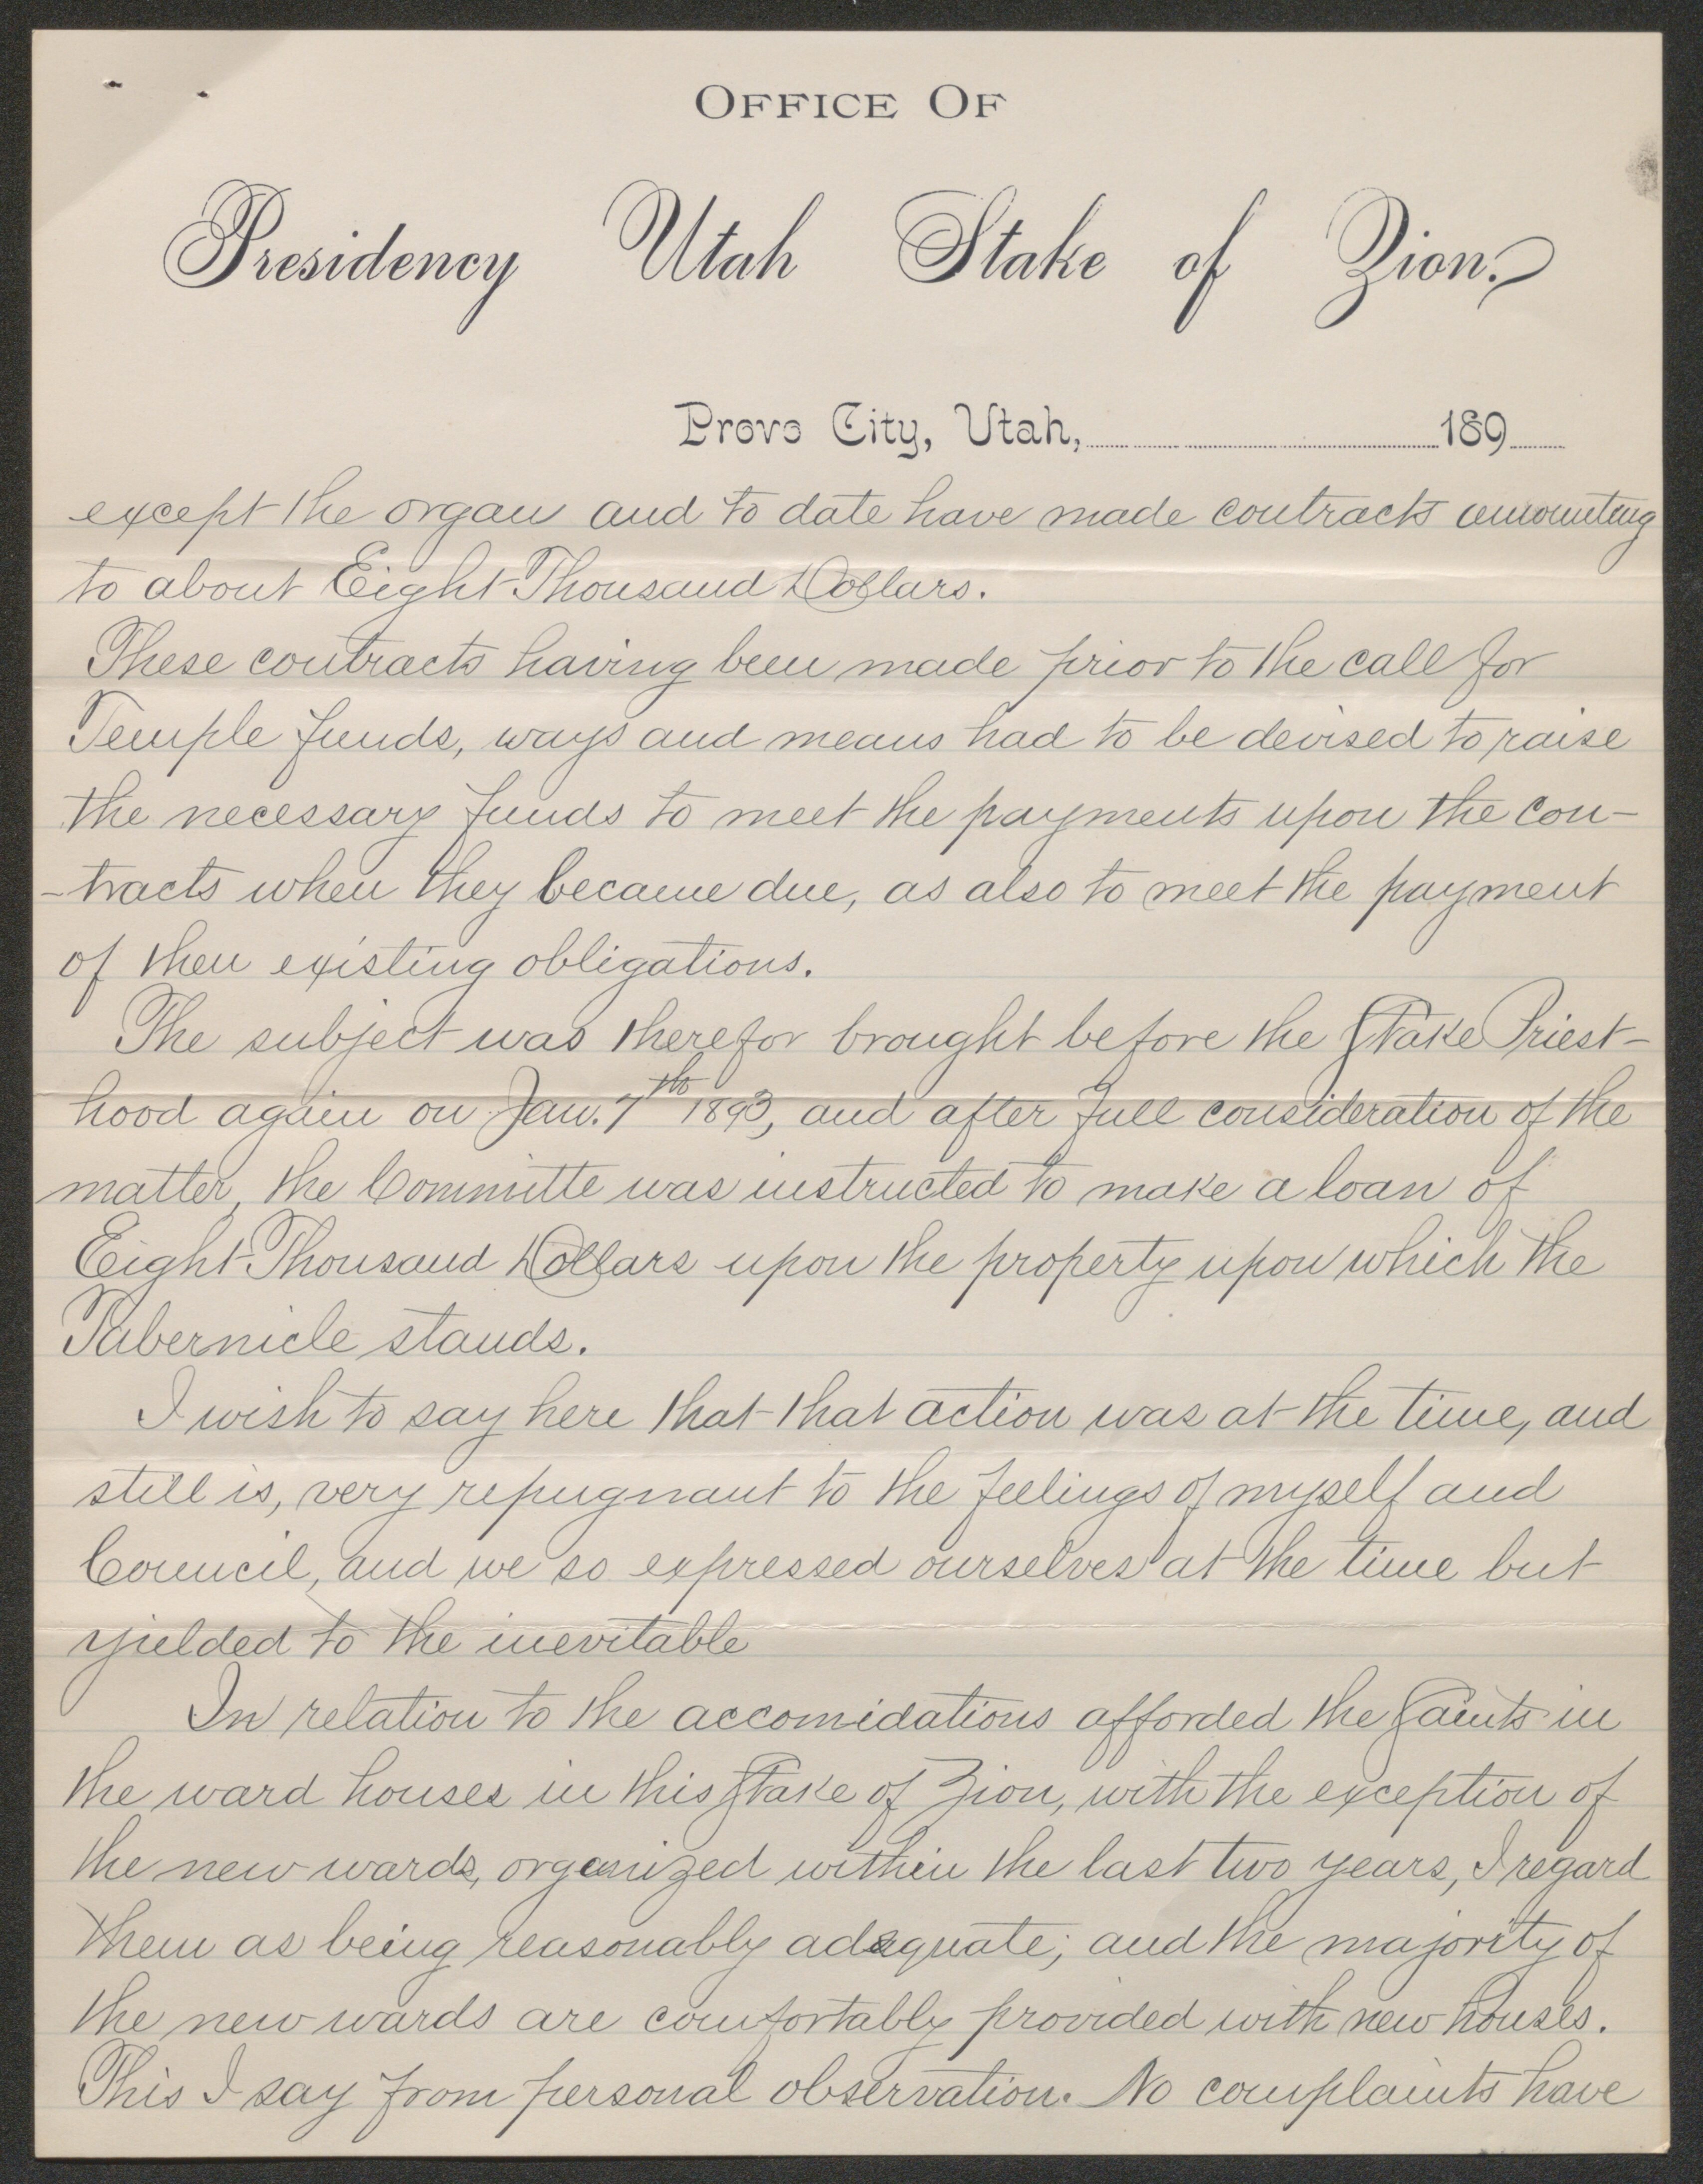 OFFICE OF
Presidency Utah Stake of Zion.
Provo City, Utah, 189
except the organ and to date have made contracts amounting
to about Eight Thousand Dollars.
These contracts having been made prior to the call for
Temple funds, ways and means had to be devised to raise
the necessary funds to meet the payments upon the con-
-tracts when they became due, as also to meet the payment
of then existing obligations.
The subject was therefor brought before the Stake Priest-
hood again on Jan. 7th 1893, and after full consideration of the
matter, the Committe was instructed to make a loan of
Eight Thousand Dollars upon the property upon which the
Tabernicle stands.
I wish to say here that that action was at the time, and
still is, very repugnant to the feelings of myself and
Council, and we so expressed ourselves at the time but
yielded to the inevitable
In relation to the accomidations afforded the Saints in
the ward houses in this Stake of Zion, with the exception of
the new wards, organized within the last two years, I regard
them as being reasonably adequate; and the majority of
the new wards are comfortably provided with new houses.
This I say from personal observation. No complaints have